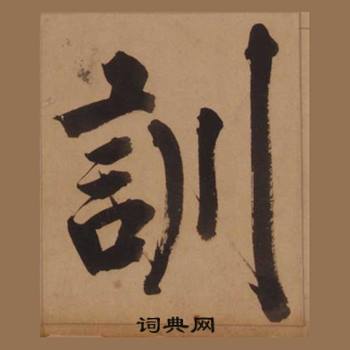 訓
词典网